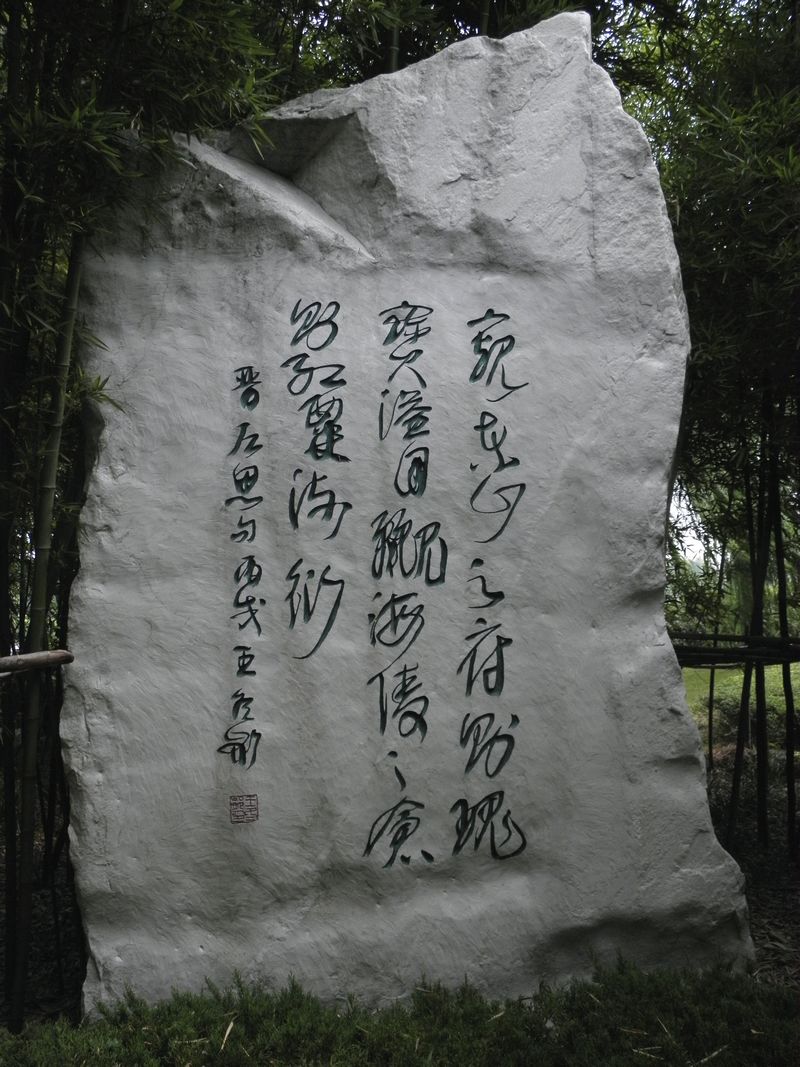 窺東山之府則瑰
寶溢目䚕海陵之倉
則紅粟流衍
晋左思句丙戌王冬